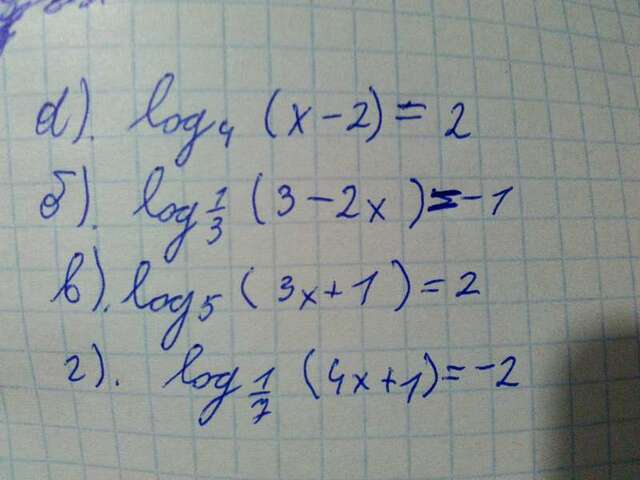 а). log₄ (x-2) = 2
б). log_{1/3} (3-2x) = -1
в). log₅ (3x+1) = 2
г). log_{1/7} (4x+1) = -2